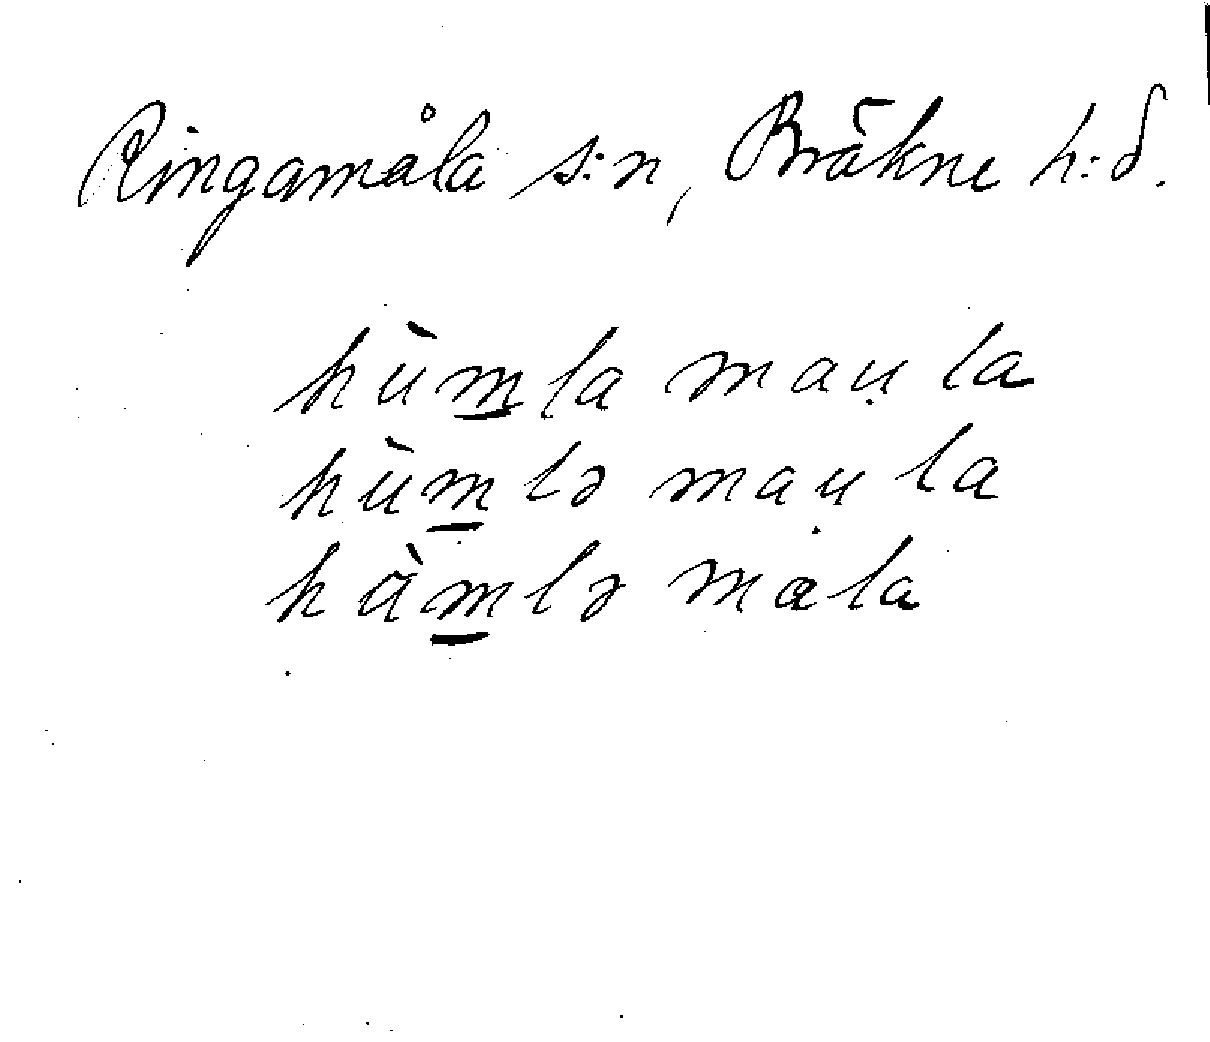 Ringamåla s:n, Bräkne h:d.
hùm̲la mau̩la
hùm̲lə mau̩la
hàm̲lə mala